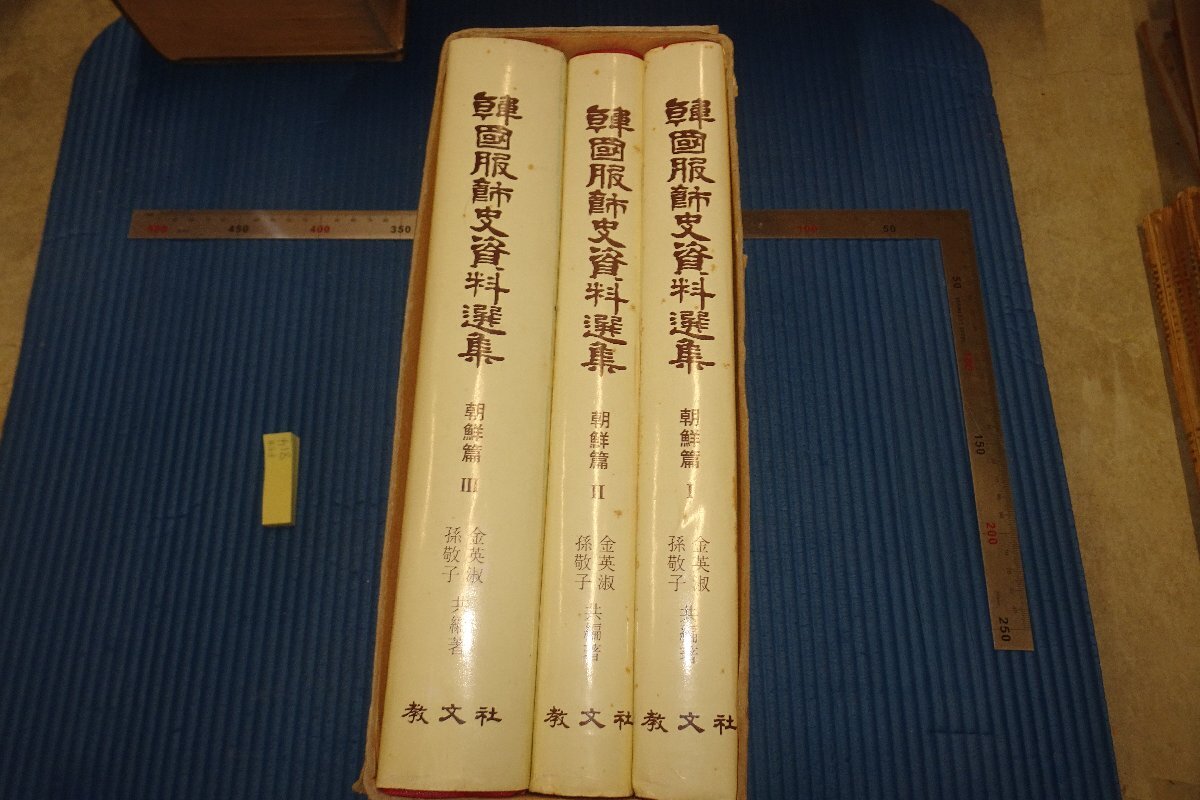 韓國服飾史資料選集
朝鮮篇 III
金英淑
孫敬子 共編著
教文社
韓國服飾史資料選集
朝鮮篇 II
金英淑
孫敬子 共編著
教文社
韓國服飾史資料選集
朝鮮篇 I
金英淑
孫敬子 共編著
教文社
450
400
350
50
150
200
250